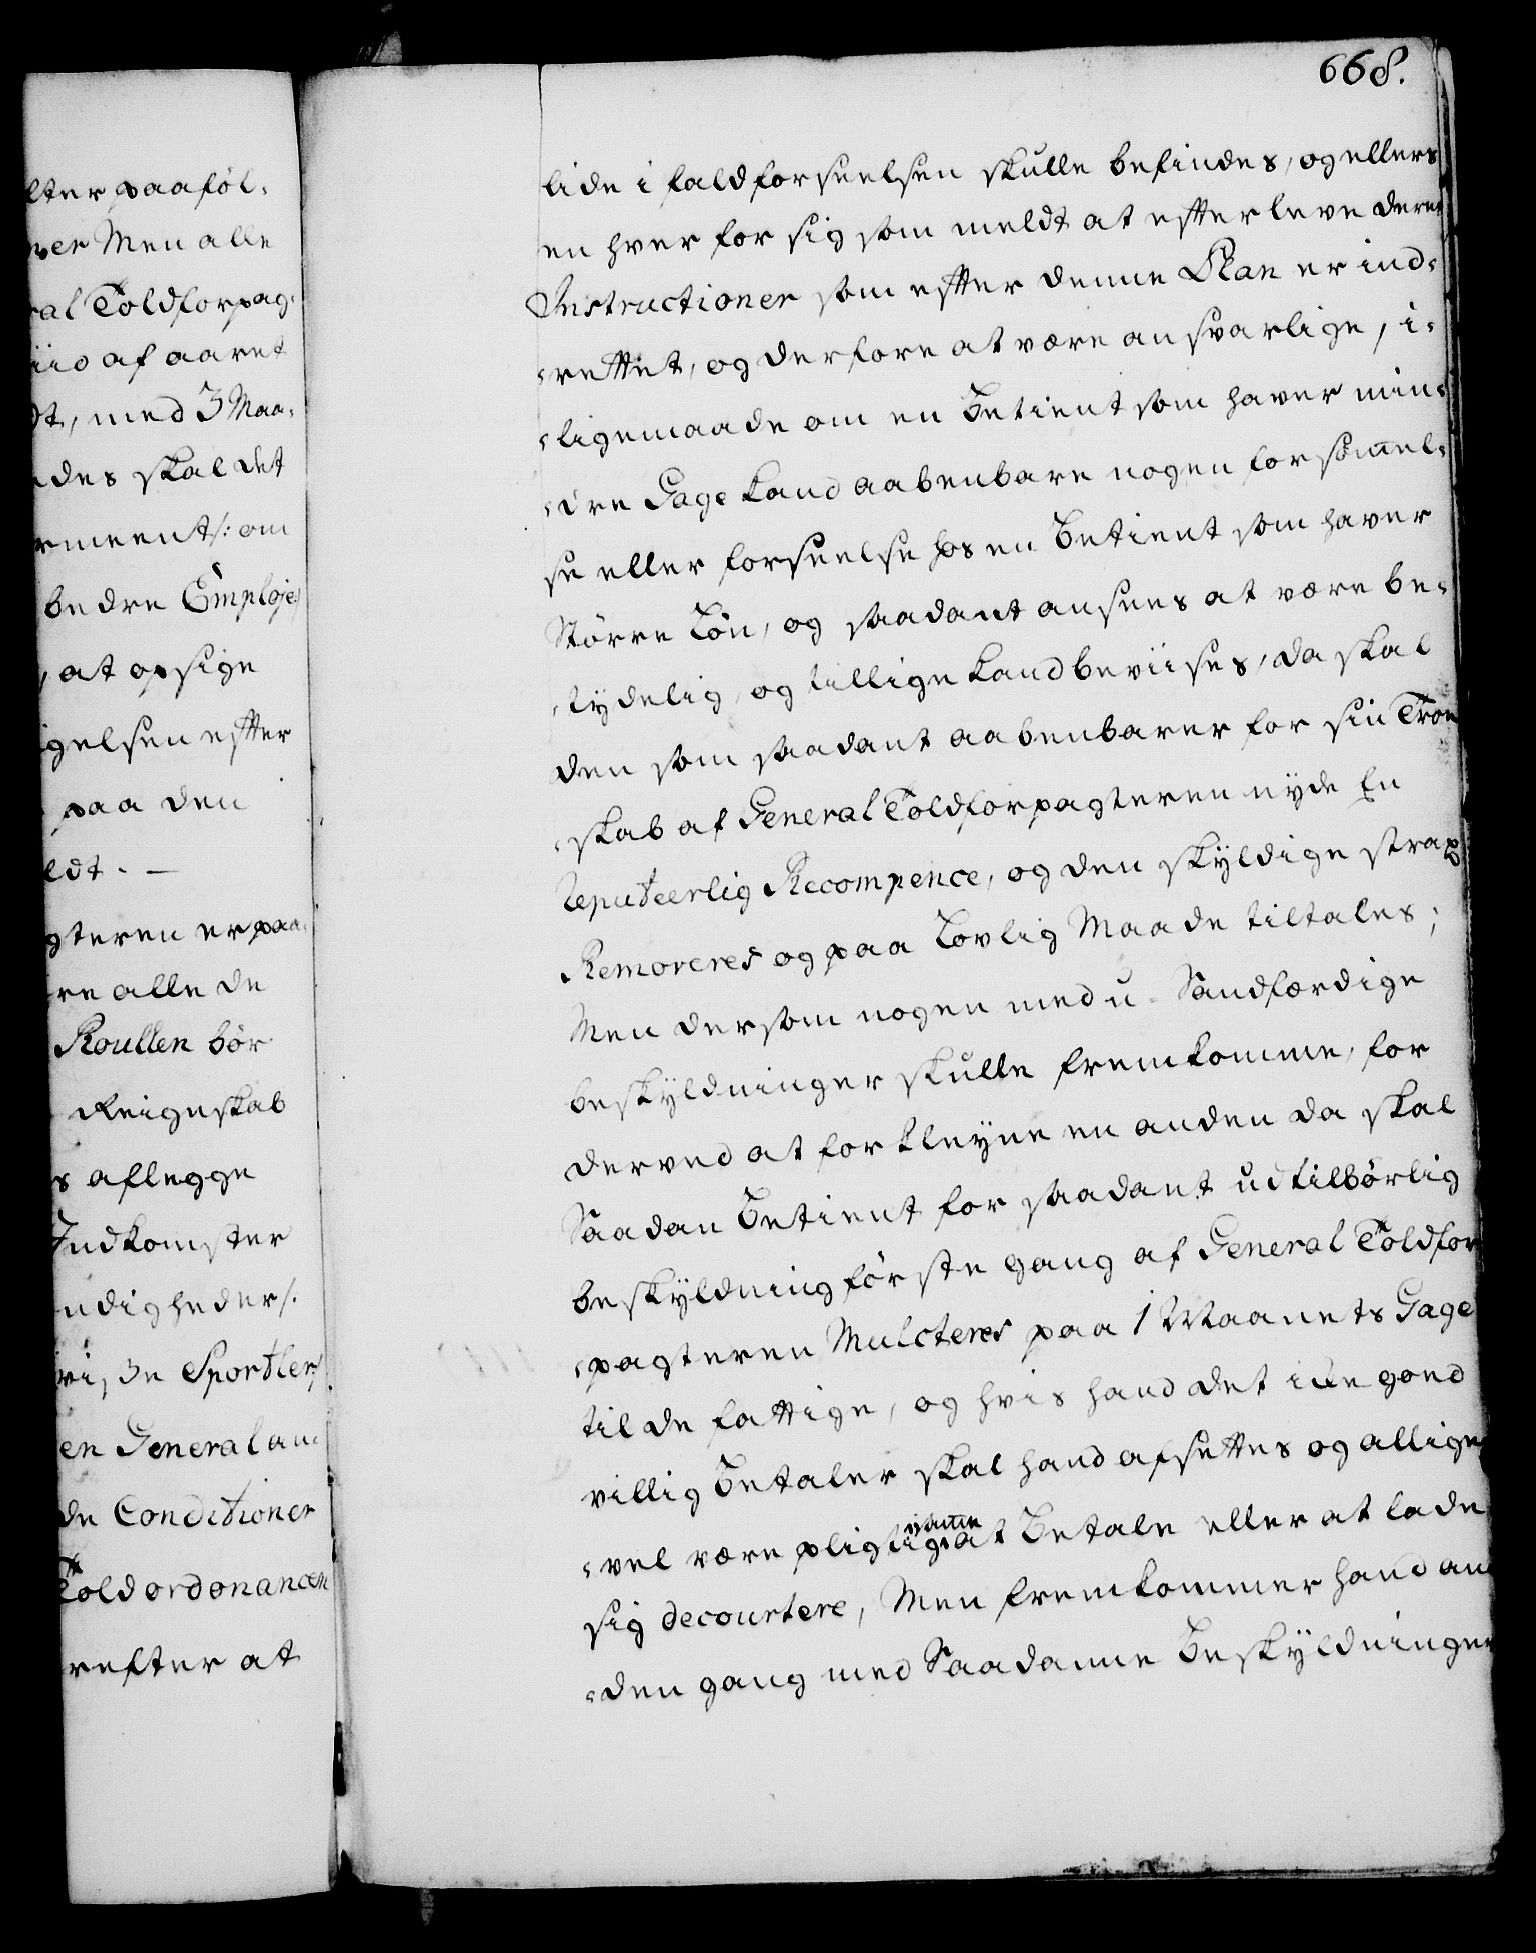 lter paaføl-
ner Men alle
ral Toldforpag-
iid af aaret
dt, med 3 Maa-
des skal det
rment /: om
bedre Emploje
, at opsige
gelsen efter
paa den
ldt. —
gteren er paa-
re alle de
Roullen bør
Reigneskab
s aflegge
Indkomster
udigheder /:
visse Sportler
en General an-
de Conditioner
Toldordonancen
refter at
668.
lide i fald forseelsen skulle befindes, og ellers
en hver for sig som meldt at efterleve deres
Instructioner som efter denne Plan er ind-
-rettet, og derfore at være ansvarlige, i-
-ligemaade om en Betient som haver min-
-dre Gage kand aabenbare nogen forsømmel-
se eller forseelse hos en Betient som haver
Større Løn, og saadant ansees at være be-
-tydelig, og tillige kand beviises, da skal
den som saadant aabenbarer for sin Troe
-skab af General Toldforpagteren nyde En
reputeerlig Recompence, og den skyldige strax
Removeres og paa Lovlig Maade tiltales;
Men dersom nogen med u-Sandfærdige
beskyldninger skulle fremkomme, for
derved at forkleyne en anden da skal
Saadan Betient for saadant utilbørlig
beskyldning første gang af General Toldfor
-pagteren Mulcteres paa 1 Maanets Gage
til de fattige, og hvis hand det icke goed
villig Betaler skal hand afsettes og allige
-vel være pligtig samme at Betale eller at lade
sig decourtere, Men fremkommer hand an
-den gang med Saadanne Beskyldninger